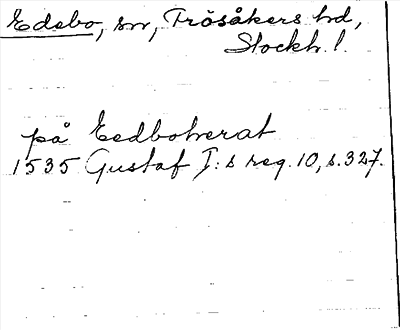 Edebo, sn, Frösåkers hd,
Stockh. l.
på Eedbohverat
1535 Gustaf I:s reg. 10, s. 327.